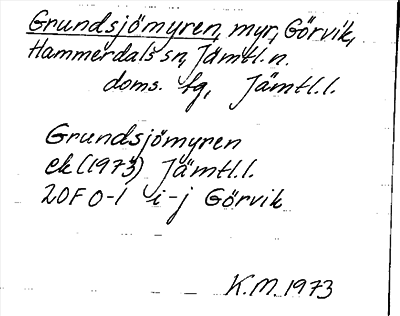 Grundsjömyren, myr, Görvik,
Hammerdals sn, Jämtl. n.
doms. fg, Jämtl. l.
Grundsjömyren
ek (1973) Jämtl. l.
20F 0-1 i-j Görvik
K.M. 1973